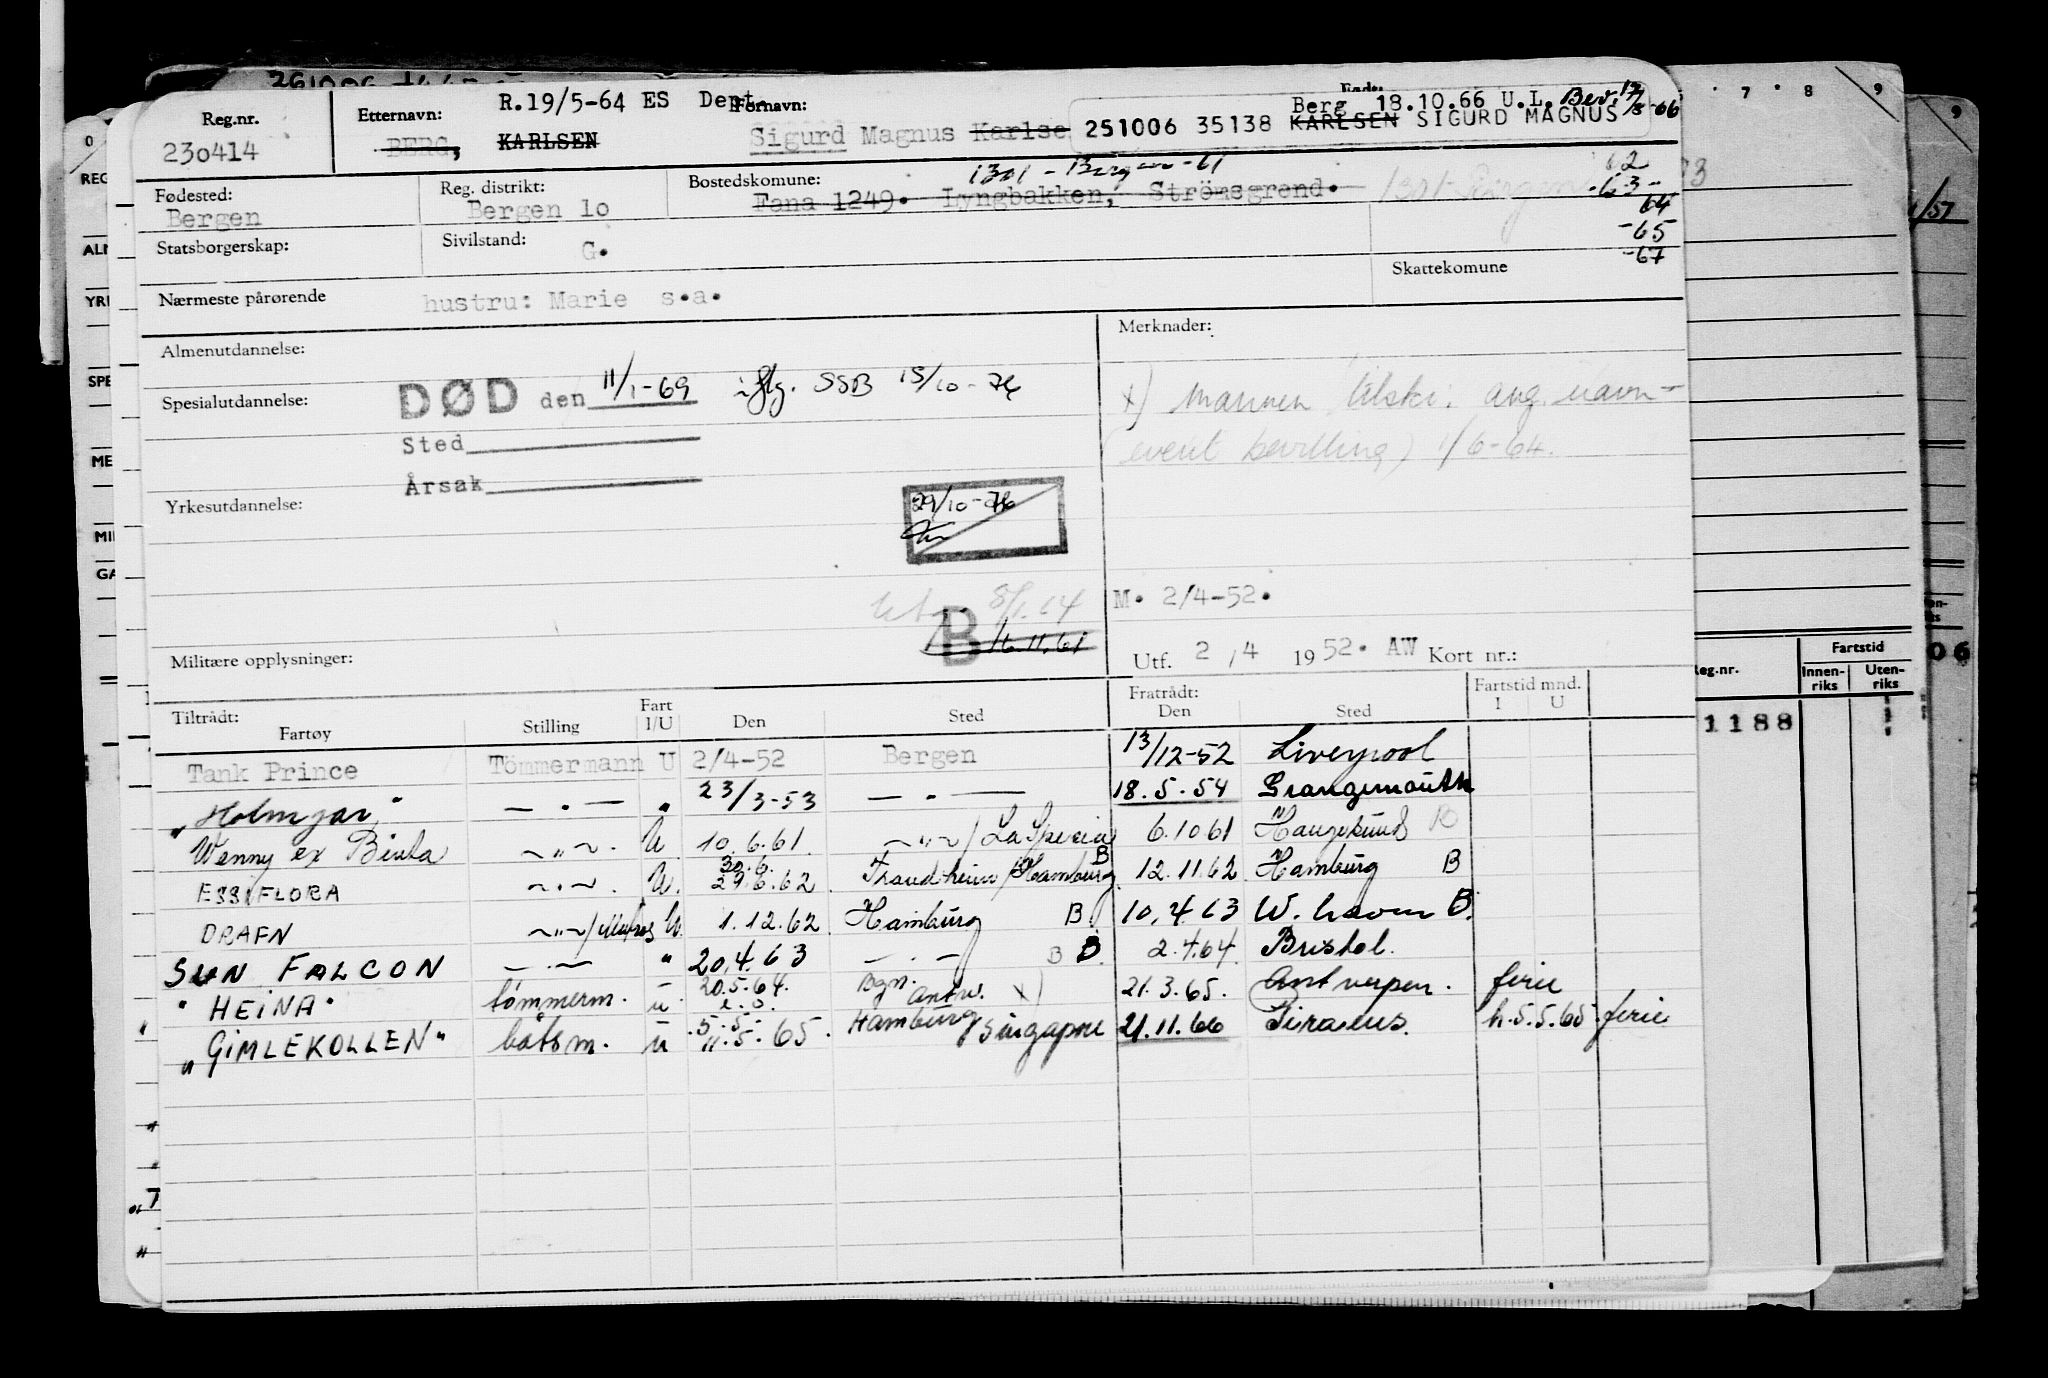 Reg.nr. Etternavn: R.19/5-64 ES Dept. Fornavn: Berg 18.10.66 U.L. Bev. 66
230414 BERG, KARLSEN Sigurd Magnus Karlse 251006 35138 KARLSEN SIGURD MAGNUS
Fødested: Reg. distrikt: Bostedskomune: 1301 - Bergen -61 62
Bergen Bergen lo Fana 1249. Lyngbakken, Strömsgrend. 1301 Bergen 63
64
Statsborgerskap: Sivilstand: G. -65
-67
Skattekomune
Nærmeste pårørende hustru: Marie s.a.
Almenutdannelse: Merknader:
Spesialutdannelse: DØD den 11/1-69 iflg. SSB 15/10-76
x) mannen tilskr. ang. navn
Sted
(event bevilling) 1/6-64.
Årsak
Yrkesutdannelse: 29/10-76
M. 2/4-52.
B 16.11.61
Militære opplysninger: Utf. 2 / 4 1952. AW Kort nr.:
Tiltrådt: Fratrådt: Fartstid mnd.
Fartøy Stilling Fart I/U Den Sted Den Sted I U
Tank Prince Tömmermann U 2/4-52 Bergen 13/12-52 Liverpool
"Holmgar" — " — " 23/3-53 — " — 18.5.54 Grangemouth
Wenny ex Binta — " — U 10.6.61 — " — / La Spezia 6.10 61 Haugesund B
ESSI FLORA — " — U. 30.6. 29.6.62 Trondheim / Hamburg B 12.11.62 Hamburg B
DRAFN — " — / Matros U. 1.12.62 Hamburg B 10.4.63 W. haven B.
SUN FALCON — " — " 20.4.63 — " — B B 2.4.64 Bristol.
"HEINA" tömmerm. u 20.5.64. Bgn. Antw. x) 21.3.65. Antwerpen. ferie
"GIMLEKOLLEN" båtsm. u 5.5. 11.5.65. Hamburg Singapore 21.11.66 Piraeus. h.5.5.65 ferie
REG
ALM
YRK
SPE
ME
MIL
GA
7 8 9
1/57
Reg.nr. Fartstid
Innen-riks Uten-riks
1188
06